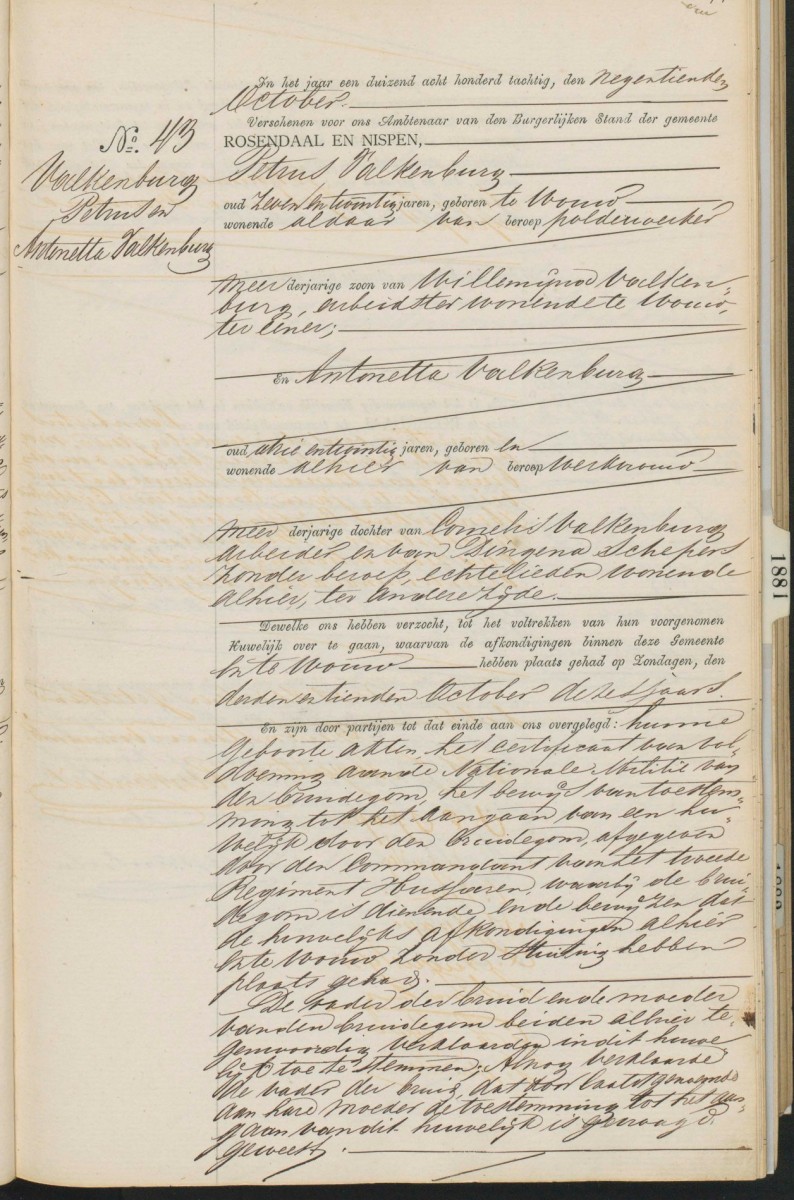 No. 43
Valkenburg
Petrus en
Antonetta Valkenburg
In het jaar een duizend acht honderd tachtig, den negentienden
October.
Verschenen voor ons Ambtenaar van den Burgerlijken Stand der gemeente
ROSENDAAL EN NISPEN,
Petrus Valkenburg
oud zeven en twintig jaren, geboren te Wouw
wonende aldaar van beroep polderwerker
meer derjarige zoon van Willemijna Valken-
burg, arbeidster wonende te Wouw,
ter eener;
En Antonetta Valkenburg
oud drie en twintig jaren, geboren en
wonende alhier van beroep werkvrouw
meer derjarige dochter van Cornelis Valkenburg
arbeider en van Dingena Schepers
zonder beroep, echtelieden wonende
alhier, ter andere zijde.
Dewelke ons hebben verzocht, tot het voltrekken van hun voorgenomen
Huwelijk over te gaan, waarvan de afkondigingen binnen deze Gemeente
en te Wouw hebben plaats gehad op Zondagen, den
derden en tienden October dezes jaars.
En zijn door partijen tot dat einde aan ons overgelegd: hunne
geboorte akten, het certificaat van vol-
doening aan de Nationale Militie van
den bruidegom, het bewijs van toestem-
ming tot het aangaan van een hu-
welijk door den bruidegom, afgegeven
door den Commandant van het tweede
Regiment Hussaren, waarbij de brui-
degom is dienende, en de bewijzen dat
de huwelijks afkondigingen alhier
en te Wouw zonder stuiting hebben
plaats gehad.
De vader der bruid en de moeder
van den bruidegom beiden alhier te-
genwoordig verklaarden in dit huwe
lijk toe te stemmen; Alnog verklaarde
de vader der bruid, dat door laatstgenoemde
aan hare moeder de toestemming tot het aan-
gaan van dit huwelijk is gevraagd
geweest.
1881